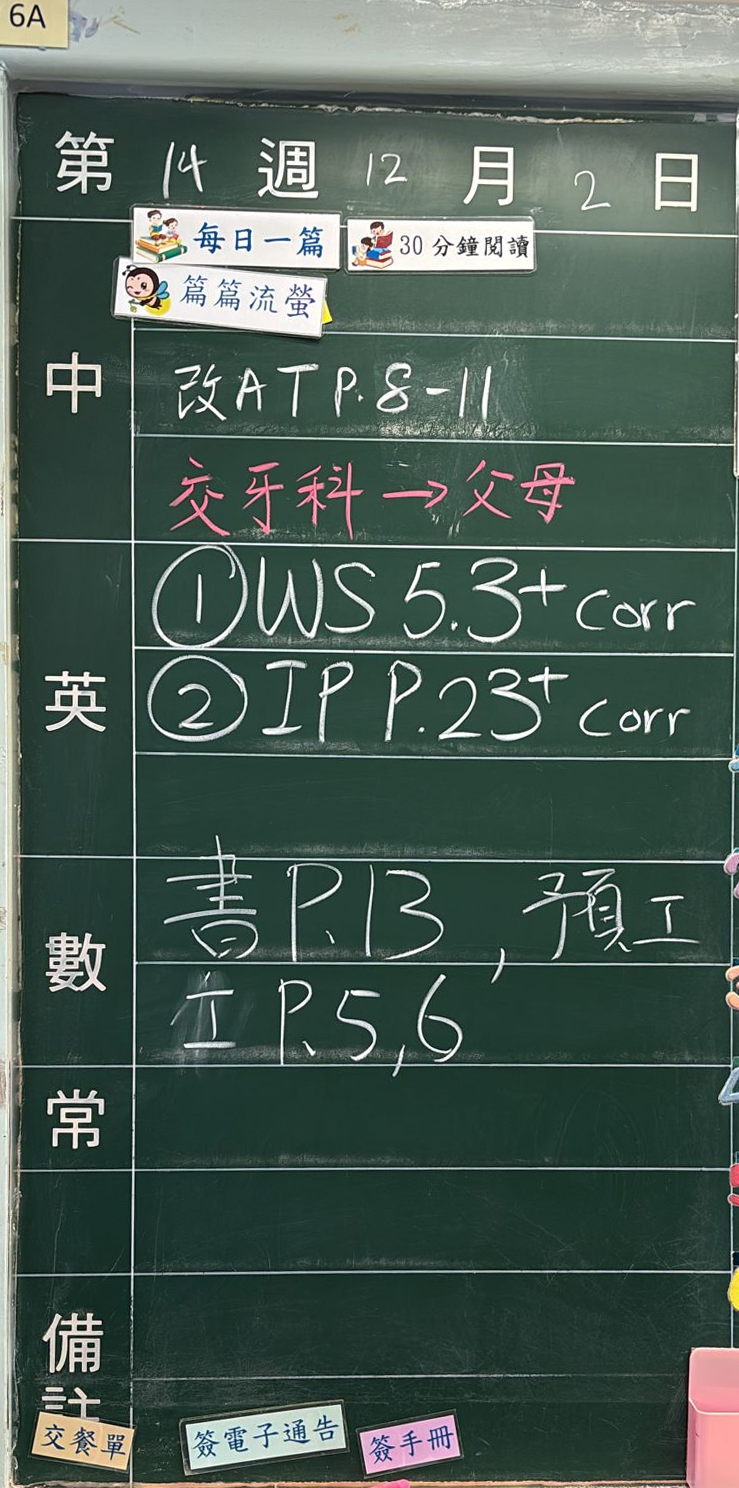 6A
第 14 週 12 月 2 日
每日一篇 30分鐘閱讀
篇篇流螢
中
改AT P.8-11
交牙科→父母
英
①WS 5.3+corr
②IP P.23+corr
數
書P.13,預工
工P.5,6
常
備註
交餐單 簽電子通告 簽手冊